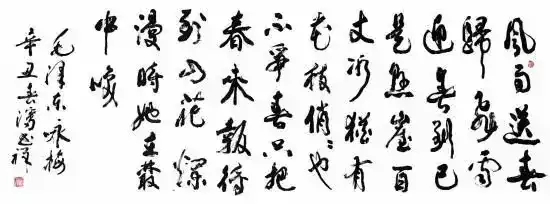 風雨送春
歸飛雪
迎春到已
是懸崖百
丈冰猶有
花枝俏俏也
不爭春只把
春來報待
到山花爛
漫時她在叢
中咲
毛澤東咏梅
辛丑春